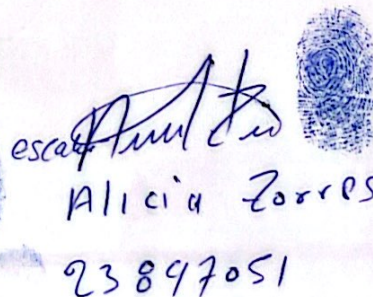 esca
Alicia Zorres
23847051